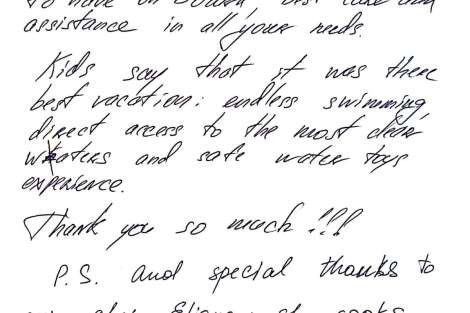 to have on board, best care and
assistance in all your needs.
Kids say that it was there
best vacation: endless swimming,
direct access to the most clear
waters and safe water toys
experience.
Thank you so much !!!
P.S. and special thanks to